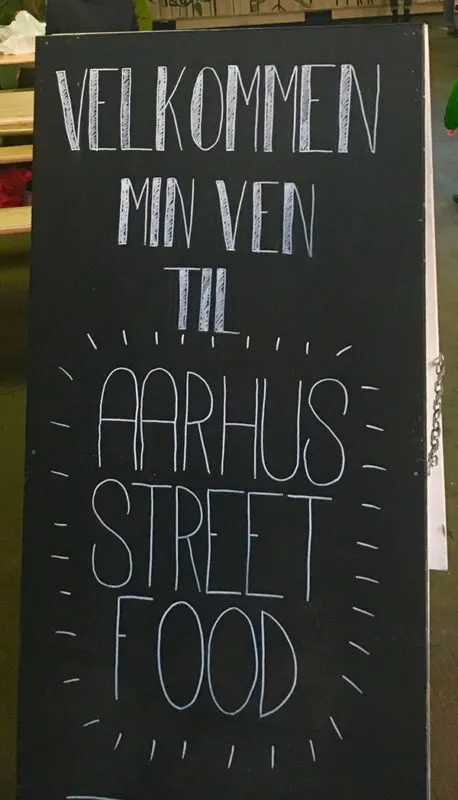 VELKOMMEN
MIN VEN
TIL
AARHUS
STREET
FOOD